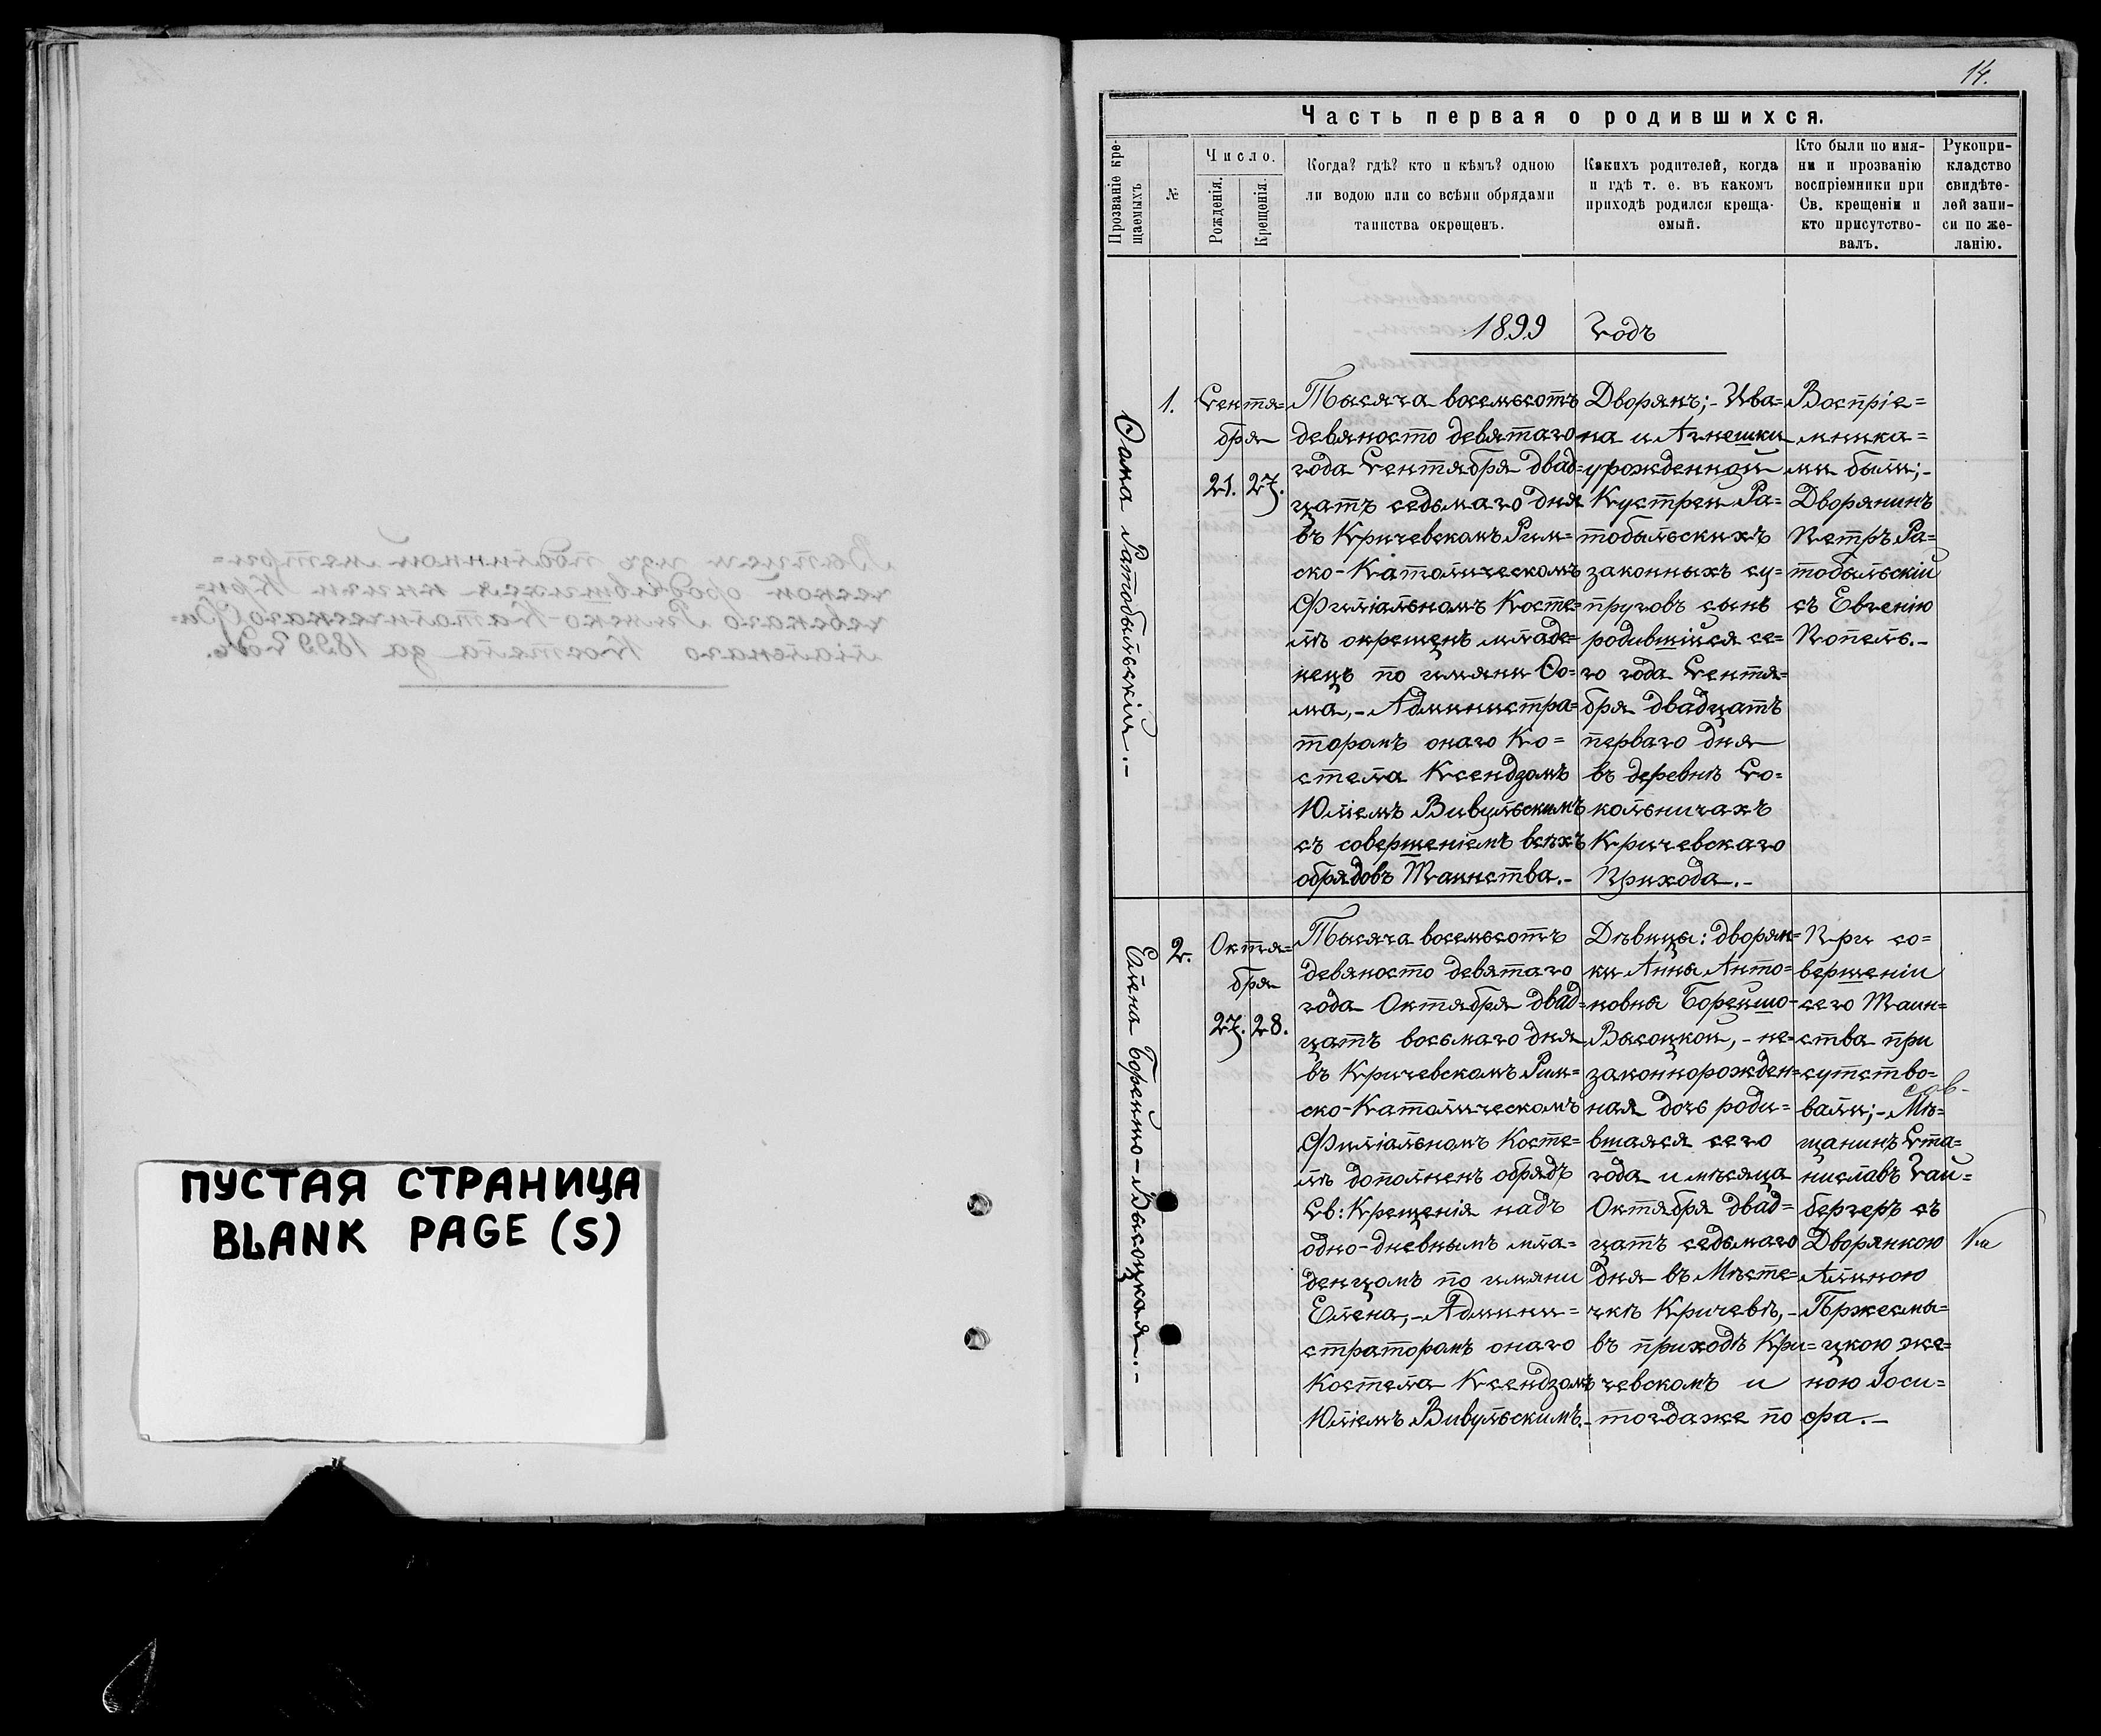 ПУСТАЯ СТРАНИЦА
BLANK PAGE (S)
14.
Часть первая о родившихся.
Прозваніе кре-
щаемыхъ
№
Число.
Рожденія.
Крещенія.
Когда? гдѣ? кто и кѣмъ? одною
ли водою или со всѣми обрядами
таинства окрещенъ.
Какихъ родителей, когда
и гдѣ т. е. въ какомъ
приходѣ родился креща-
емый.
Кто были по имя-
ни и прозванію
воспріемники при
Св. крещеніи и
кто присутство-
валъ.
Рукопри-
кладство
свидѣте-
лей запи-
си по же-
ланію.
1899 Годъ
Ѳома Ратобыльскій.-
1.
Сентя=
бря
21. 27.
Тысяча восемьсотъ
девяносто девятаго
года Сентября двад=
цатъ седьмаго дня
въ Кричевскомъ Рим=
ско-Католическомъ
Филіальномъ Косте=
лѣ окрещенъ младе=
нецъ по имяни Ѳо=
ма,- Администра=
торомъ онаго Ко=
стела Ксендзомъ
Юліемъ Вивульскимъ
съ совершеніемъ всѣхъ
обрядовъ Таинства.-
Дворянъ;- Ива=
на и Агнешки
урожденной
Кустреи Ра=
тобыльскихъ
законныхъ су=
пруговъ сынъ
родившійся се=
го года Сентя=
бря двадцатъ
перваго дня
въ деревнѣ Со=
кольничахъ
Кричевскаго
Прихода.-
Воспріе=
мника=
ми были;-
Дворянинъ
Петръ Ра=
тобыльскій
съ Евгенію
Попель.-
Елена Борейшо-Высоцкая.-
2.
Октя=
бря
27. 28.
Тысяча восемьсотъ
девяносто девятаго
года Октября двад=
цатъ восьмаго дня
въ Кричевскомъ Рим=
ско-Католическомъ
Филіальномъ Косте=
лѣ дополненъ обрядъ
Св: Крещенія надъ
одно-дневнымъ мла=
денцомъ по имяни
Елена,- Админи=
страторомъ онаго
Костела Ксендзомъ
Юліемъ Вивульскимъ.-
Дѣвицы: дворян=
ки Анны Анто=
новны Борейшо-
Высоцкой,- не=
законнорожден=
ная дочь роди=
вшаяся сего
года и мѣсяца
Октября двад=
цатъ седьмаго
дня въ Мѣсте=
чкѣ Кричевѣ,-
въ приходѣ Кри=
чевскомъ и
тогдаже по
При со=
вершеніи
сего Таин=
ства при
сутство=
вали;- Мѣ=
щанинъ Ста=
ниславъ Гай=
бергеръ съ
Дворянкою
Алиною
Пржесмы=
цкою же=
ною Іоси=
фа.-